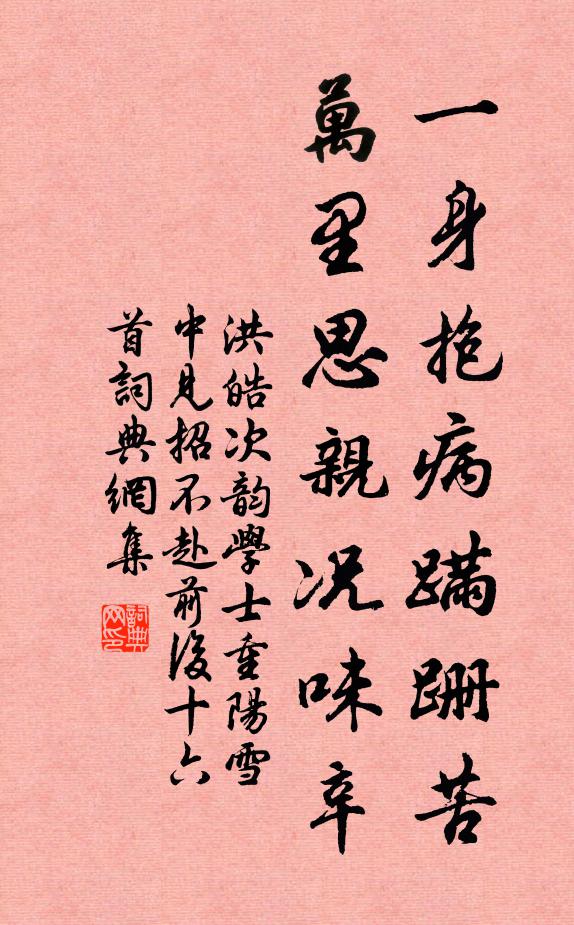 一身抱病蹣跚苦
萬里思親況味辛
洪皓次韵學士重陽雪
中見招不赴前後十六
首詞典網集
詞典
网印